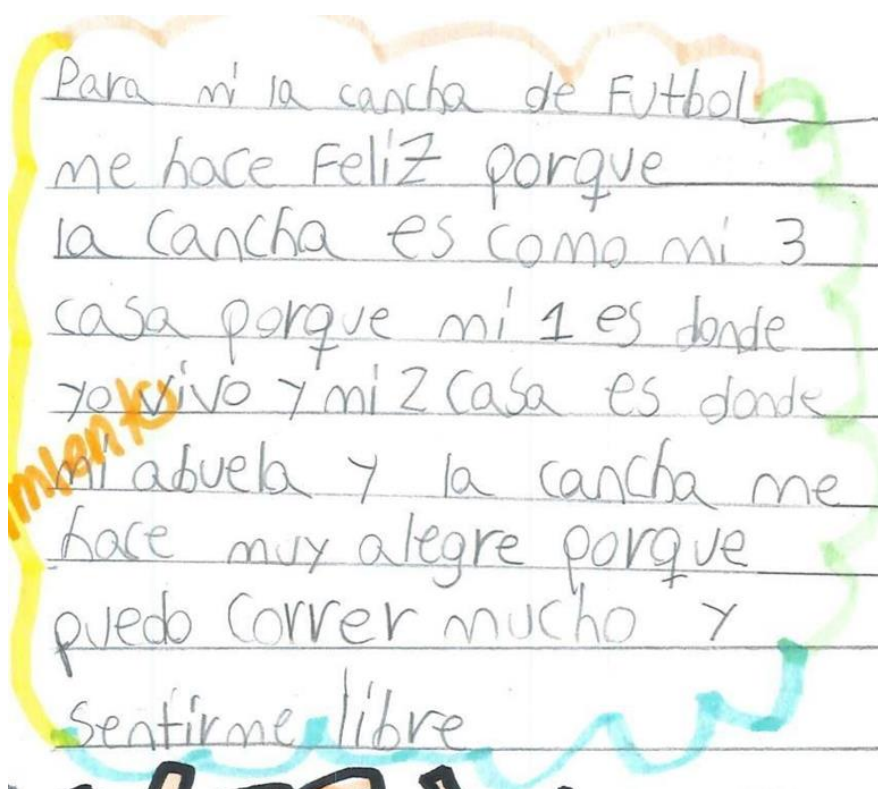 Para mi la cancha de Futbol
me hace Feliz porque
la cancha es como mi 3
casa porque mi 1 es donde
yo vivo y mi 2 casa es donde
mi abuela y la cancha me
hace muy alegre porque
puedo correr mucho y
sentirme libre